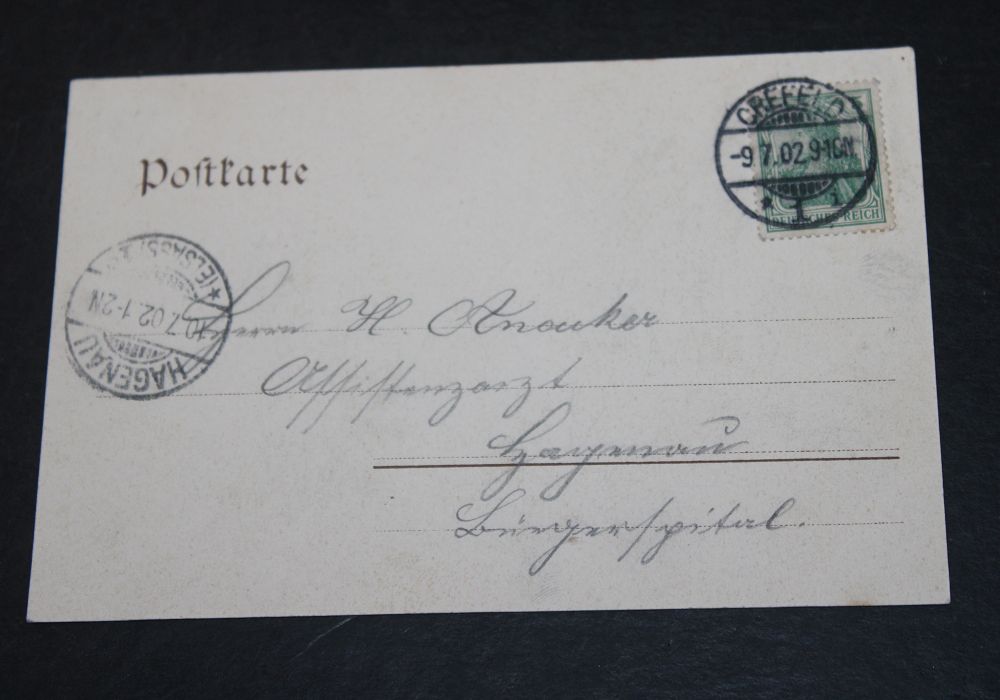 Postkarte
CREFELD
-9.7.02.9-10N
* 1 i
DEUTSCHES REICH
*(ELSASS)
10.7.02.1-2N
HAGENAU
Herrn H.
Assistenzarzt
Hagenau
Bürgerspital.